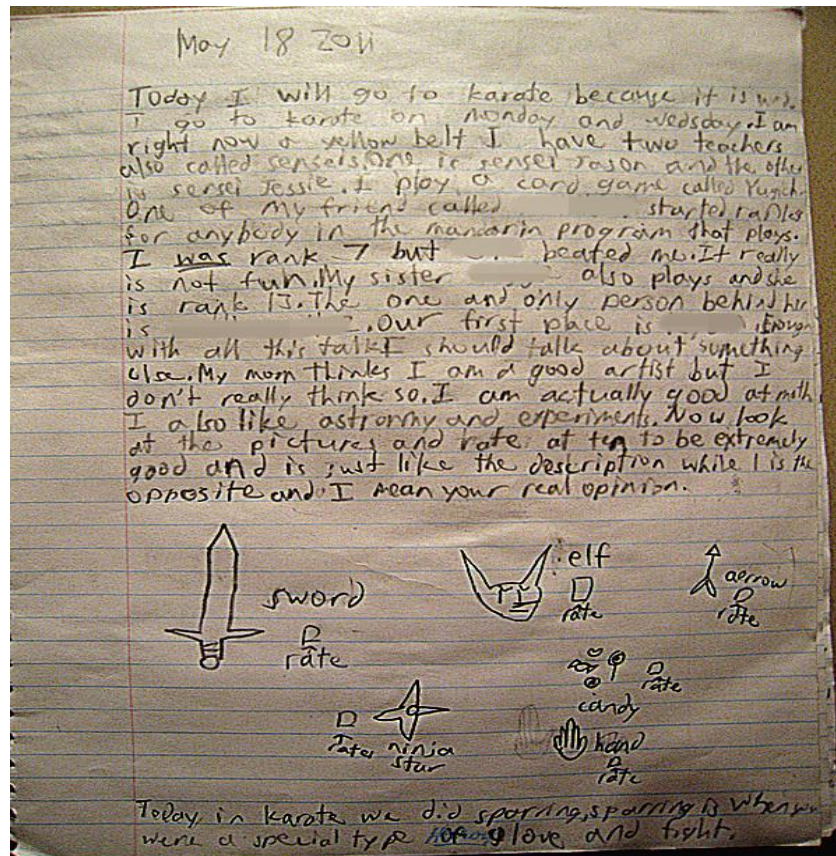 May 18 2011
Today I will go to karate because it is wed.
I go to karate on monday and wedsday. I am
right now a yellow belt I have two teachers
also called senseis. One is sensei Jason and the other
is sensei Jessie. I play a card game called Yugioh.
One of my friend called started ranks
for anybody in the mandarin program that plays.
I was rank 7 but beated me. It really
is not fun. My sister also plays and she
is rank 13. The one and only person behind her
is . Our first place is . Enough
with all this talk I should talk about something
else. My mom thinks I am a good artist but I
don't really think so. I am actually good at math
I also like astronmy and experiments. Now look
at the pictures and rate at ten to be extremely
good and is just like the description while 1 is the
opposite and I mean your real opinion.
sword
rate
elf
rate
aerrow
rate
candy
rate
rate
ninja
star
hand
rate
Today in karate we did sparring, sparring is when you
were a special type of glove and fight.